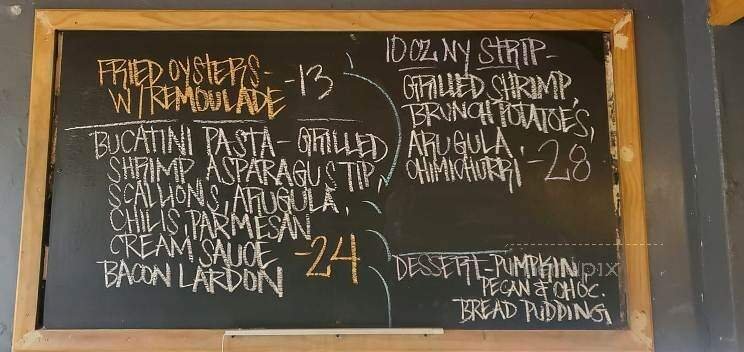 FRIED OYSTERS-
W/REMOULADE -13
BUCATINI PASTA- GRILLED
SHRIMP, ASPARAGUS TIP,
SCALLIONS, ARUGULA,
CHILIS, PARMESAN
CREAM SAUCE
BACON LARDON -24
10 OZ NY STRIP-
GRILLED SHRIMP,
BRUNCH POTATOES,
ARUGULA,
CHIMICHURRI -28
DESSERT-PUMPKIN
PECAN & CHOC.
BREAD PUDDING